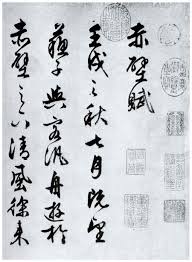 赤壁賦
壬戌之秋七月既望
蘇子與客汎舟遊於
赤壁之下清風徐來